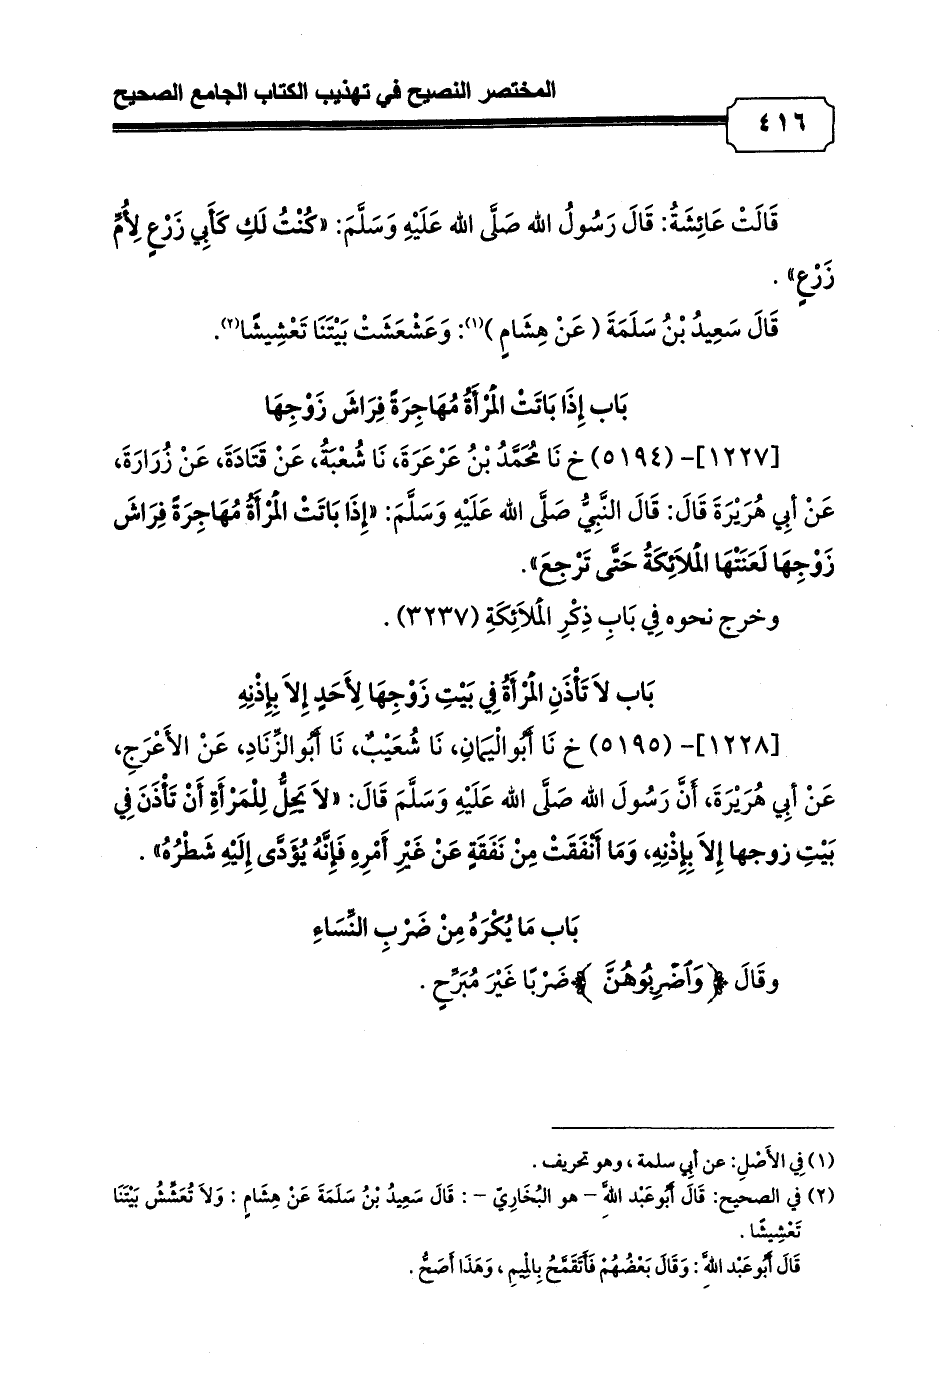 المختصر النصيح في تهذيب الكتاب الجامع الصحيح
٤١٦
قَالَتْ عَائِشَةُ: قَالَ رَسُولُ الله صَلَّى الله عَلَيْهِ وَسَلَّمَ: «كُنْتُ لَكِ كَأَبِي زَرْعٍ لِأُمِّ
زَرْعٍ» .
قَالَ سَعِيدُ بْنُ سَلَمَةَ (عَنْ هِشَامٍ)(١): وَعَشْعَشَتْ بَيْتَنَا تَعْشِيشًا(٢).
بَاب إِذَا بَاتَتْ الْمَرْأَةُ مُهَاجِرَةً فِرَاشَ زَوْجِهَا
[١٢٢٧]- (٥١٩٤) خ نَا مُحَمَّدُ بْنُ عَرْعَرَةَ، نَا شُعْبَةُ، عَنْ قَتَادَةَ، عَنْ زُرَارَةَ،
عَنْ أبِي هُرَيْرَةَ قَالَ: قَالَ النَّبِيُّ صَلَّى الله عَلَيْهِ وَسَلَّمَ: «إِذَا بَاتَتْ الْمَرْأَةُ مُهَاجِرَةً فِرَاشَ
زَوْجِهَا لَعَنَتْهَا الْمَلاَئِكَةُ حَتَّى تَرْجِعَ».
وخرج نحوه فِي بَابِ ذِكْرِ الْمَلاَئِكَةِ (٣٢٣٧) .
بَاب لاَ تَأْذَنِ الْمَرْأَةُ فِي بَيْتِ زَوْجِهَا لِأَحَدٍ إِلاَ بِإِذْنِهِ
[١٢٢٨]- (٥١٩٥) خ نَا أَبُو الْيَمَانِ، نَا شُعَيْبٌ، نَا أَبُو الزِّنَادِ، عَنْ الأَعْرَجِ،
عَنْ أبِي هُرَيْرَةَ، أَنَّ رَسُولَ الله صَلَّى الله عَلَيْهِ وَسَلَّمَ قَالَ: «لاَ يَحِلُّ لِلْمَرْأَةِ أَنْ تَأْذَنَ فِي
بَيْتِ زوجها إِلاَ بِإِذْنِهِ، وَمَا أَنْفَقَتْ مِنْ نَفَقَةٍ عَنْ غَيْرِ أَمْرِهِ فَإِنَّهُ يُؤَدَّى إِلَيْهِ شَطْرُهُ» .
بَاب مَا يُكْرَهُ مِنْ ضَرْبِ النِّسَاءِ
وقَالَ ﴿وَٱضْرِبُوهُنَّ﴾ ضَرْبًا غَيْرَ مُبَرِّحٍ .
(١) فِي الأَصْلِ: عن أبِي سلمة، وهو تحريف .
(٢) فِي الصحيح: قَالَ أَبُو عَبْد اللهِ – هو البُخَارِيّ – : قَالَ سَعِيدُ بْنُ سَلَمَةَ عَنْ هِشَامٍ : وَلاَ تُعَشِّشُ بَيْتَنَا
تَعْشِيشًا .
قَالَ أَبُو عَبْد اللهِ : وَقَالَ بَعْضُهُمْ فَأَتَقَمَّحُ بِالْمِيمِ، وَهَذَا أَصَحُّ .